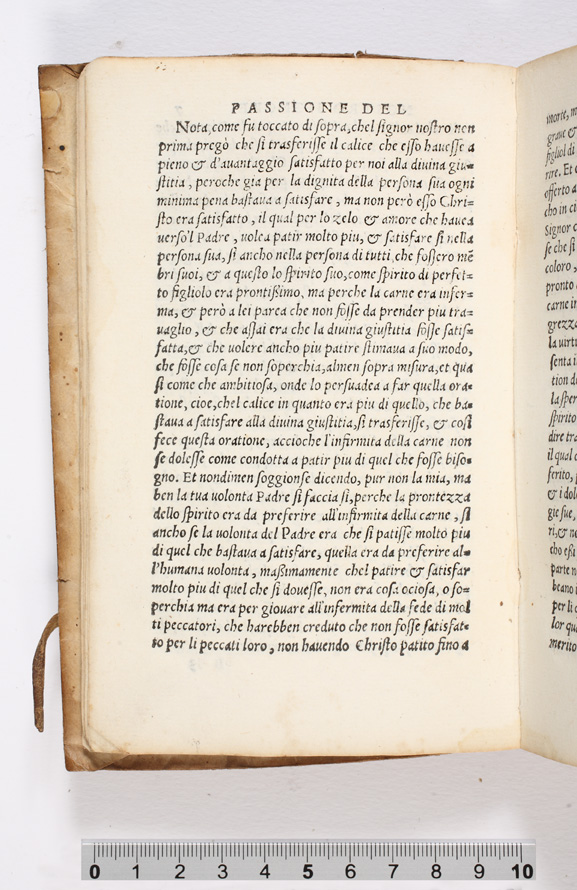 PASSIONE DEL
Nota, come fu toccato di sopra, chel signor nostro non
prima pregò che si trasferisse il calice che esso hauesse a
pieno & d'auantaggio satisfatto per noi alla diuina giu=
stitia, peroche gia per la dignita della persona sua ogni
minima pena bastaua a satisfare, ma non però esso Chri=
sto era satisfatto, il qual per lo zelo & amore che hauea
verso'l Padre, uolea patir molto piu, & satisfare si nella
persona sua, si ancho nella persona di tutti, che fossero mē
bri suoi, & a questo lo spirito suo, come spirito di perfet=
to figliolo era prontißimo, ma perche la carne era infer=
ma, & però a lei parea che non fosse da prender piu tra=
uaglio, & che assai era che la diuina giustitia fosse satis=
fatta, & che uolere ancho piu patire stimaua a suo modo,
che fosse cosa se non soperchia, almen sopra misura, et qua
si come che ambitiosa, onde lo persuadea a far quella ora=
tione, cioe, chel calice in quanto era piu di quello, che ba=
staua a satisfare alla diuina giustitia, si trasferisse, & così
fece questa oratione, accioche l'infirmita della carne non
se dolesse come condotta a patir piu di quel che fosse biso=
gno. Et nondimen soggionse dicendo, pur non la mia, ma
ben la tua uolonta Padre si faccia si, perche la prontezza
dello spirito era da preferire all'infirmita della carne, si
ancho se la uolonta del Padre era che si patisse molto piu
di quel che bastaua a satisfare, quella era da preferire al=
l'humana uolonta, maßimamente chel patire & satisfar
molto piu di quel che si douesse, non era cosa ociosa, o so=
perchia ma era per giouare all'infermita della fede di mol
ti peccatori, che harebben creduto che non fosse satisfat=
to per li peccati loro, non hauendo Christo patito fino a
morte, m
graue &
figliol di
rire. Et
offerto a
cho in ci
Signor c
se che si
coloro,
pronto
carne in
grezza
la uirtu
senta i
tion di
la sper
spirito
dire tra
il qual c
ferito, p
& i dol
gie sue,
ri, & ne
cho eßi
parte n
beano i
per li c
lor qu
merito
0 1 2 3 4 5 6 7 8 9 10